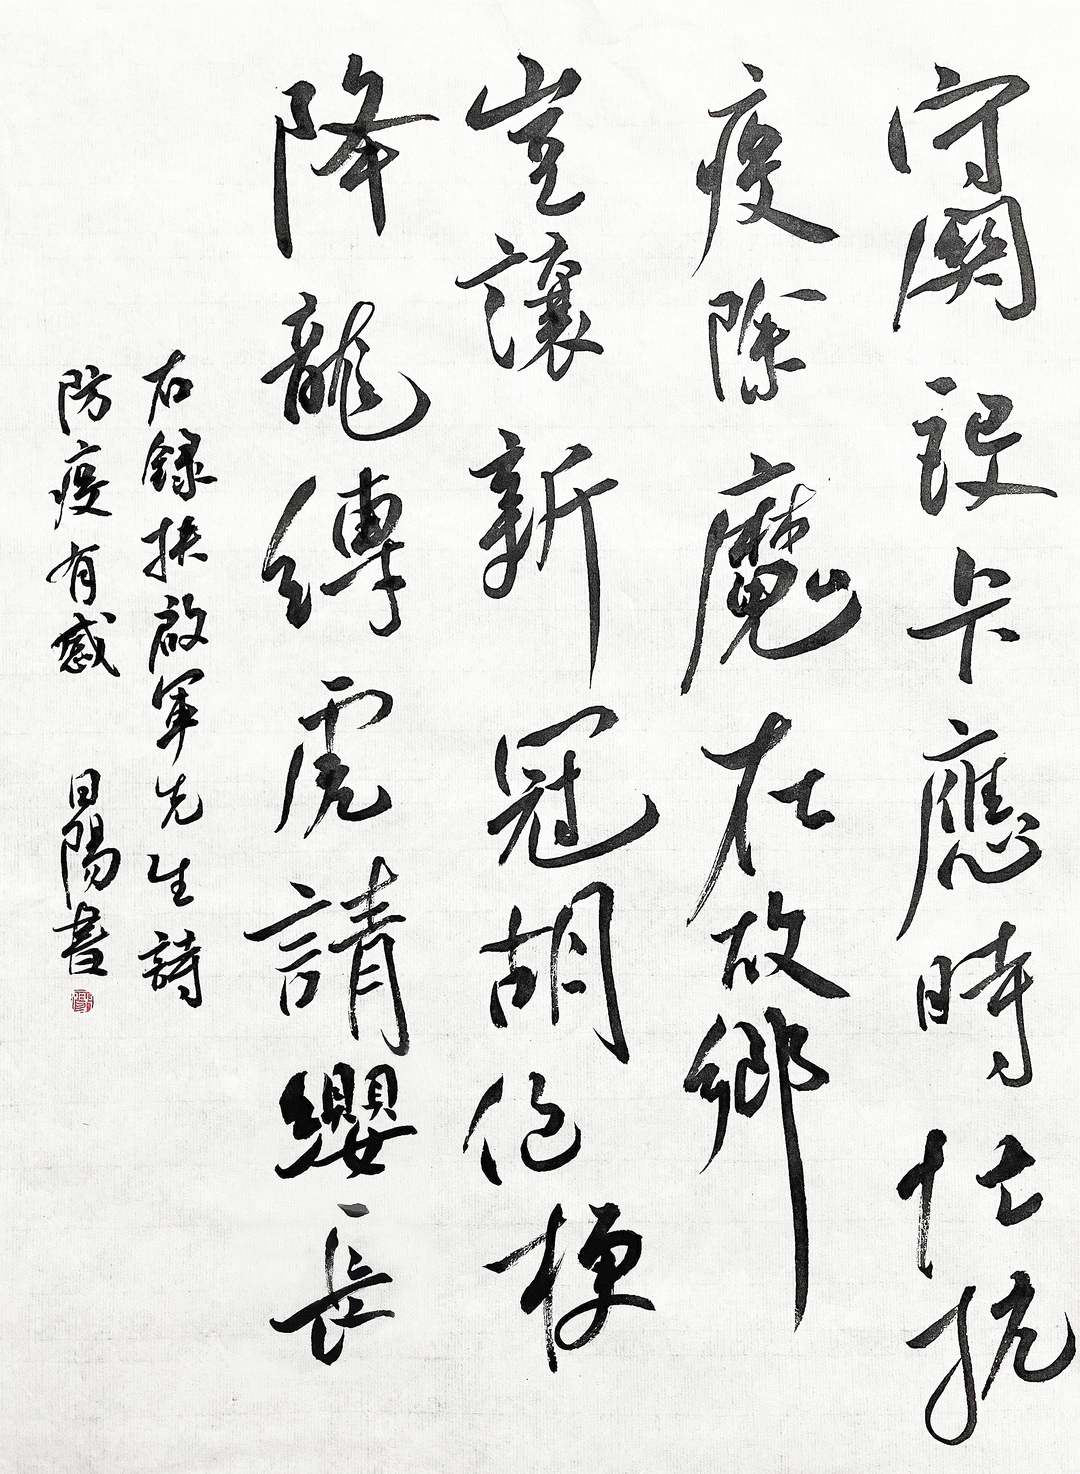 守關設卡應時忙抗
疫除魔在故鄉
豈讓新冠胡作梗
降龍縛虎請纓長
右錄扶啟軍先生詩
防疫有感 日陽書